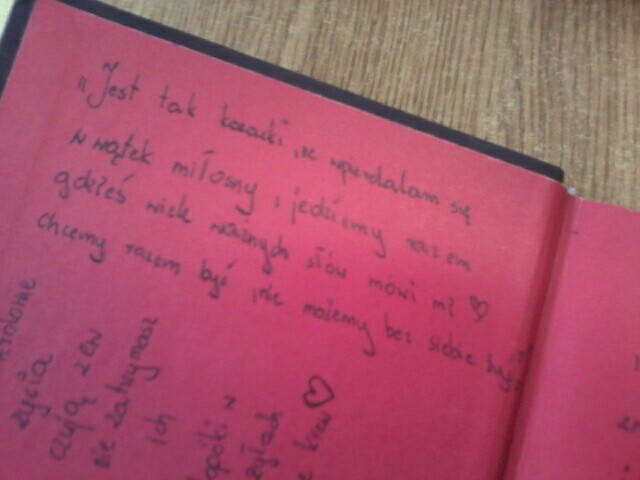 "Jest tak kozacki, że wpierdalam się
w wątek miłosny i jedziemy razem
gdzieś wiele ważnych słów mówi mi ♡
chcemy razem być, nie możemy bez siebie żyć
życia
czują, że
nie zatrzymasz
ich
póki z
żyłach
krew ♡